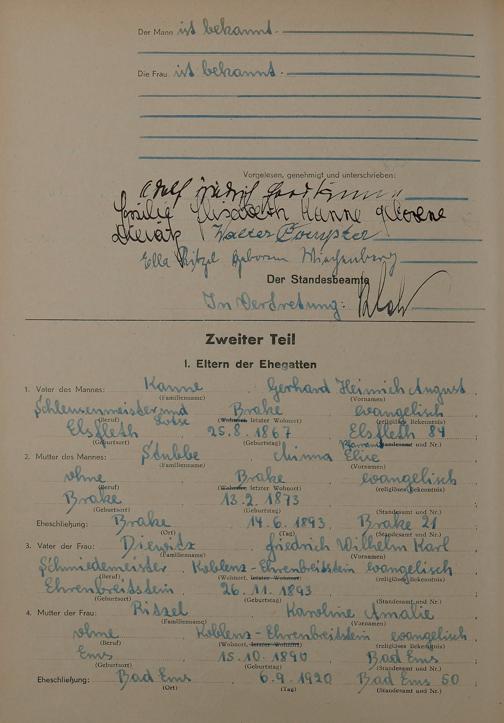 Der Mann ist bekannt.
Die Frau ist bekannt.
Vorgelesen, genehmigt und unterschrieben:
Adolf Friedrich
Emilie Elisabeth Hanne geborene
Walter
Ella Ritzel geboren
Der Standesbeamte
In Vertretung:
Zweiter Teil
I. Eltern der Ehegatten
1. Vater des Mannes: Kanne Gerhard Heinrich August
(Familienname) (Vornamen)
Schleusenmeister und Lotse Brake evangelisch
(Beruf) (Wohnort, letzter Wohnort) (religiöses Bekenntnis)
Elsfleth 25.8.1867 Elsfleth 84
(Geburtsort) (Geburtstag) (Standesamt und Nr.)
2. Mutter des Mannes: Stubbe Minna Elise
(Familienname) (Vornamen)
ohne Brake evangelisch
(Beruf) (Wohnort, letzter Wohnort) (religiöses Bekenntnis)
Brake 13.2.1873
(Geburtsort) (Geburtstag) (Standesamt und Nr.)
Eheschließung: Brake 14.6.1893 Brake 21
(Ort) (Tag) (Standesamt und Nr.)
3. Vater der Frau: Friedrich Wilhelm Karl
(Familienname) (Vornamen)
Schmiedemeister Koblenz-Ehrenbreitstein evangelisch
(Beruf) (Wohnort, letzter Wohnort) (religiöses Bekenntnis)
Ehrenbreitstein 26.11.1893
(Geburtsort) (Geburtstag) (Standesamt und Nr.)
4. Mutter der Frau: Ritzel Karoline Amalie
(Familienname) (Vornamen)
ohne Koblenz-Ehrenbreitstein evangelisch
(Beruf) (Wohnort, letzter Wohnort) (religiöses Bekenntnis)
Ems 15.10.1890 Bad Ems
(Geburtsort) (Geburtstag) (Standesamt und Nr.)
Eheschließung: Bad Ems 6.9.1920 Bad Ems 50
(Ort) (Tag) (Standesamt und Nr.)